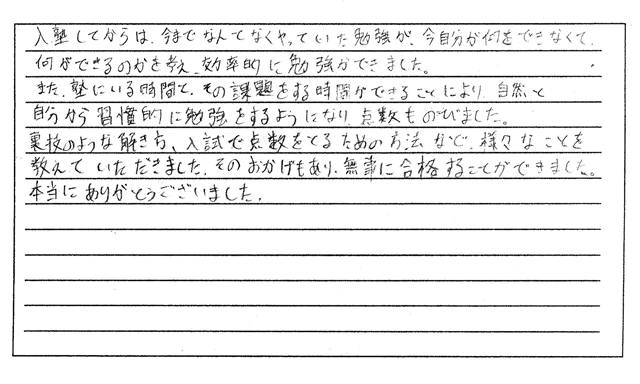 入塾してからは、今までなんてなくやっていた勉強が、今自分が何をできなくて、
何ができるのかを考え、効率的に勉強ができました。
また、塾にいる時間で、その課題をする時間ができることにより、自然と
自分から習慣的に勉強をするようになり、点数ものびました。
裏技のような解き方、入試で点数をとるための方法など、様々なことを
教えていただきました。そのおかげもあり、無事に合格することができました。
本当にありがとうございました。